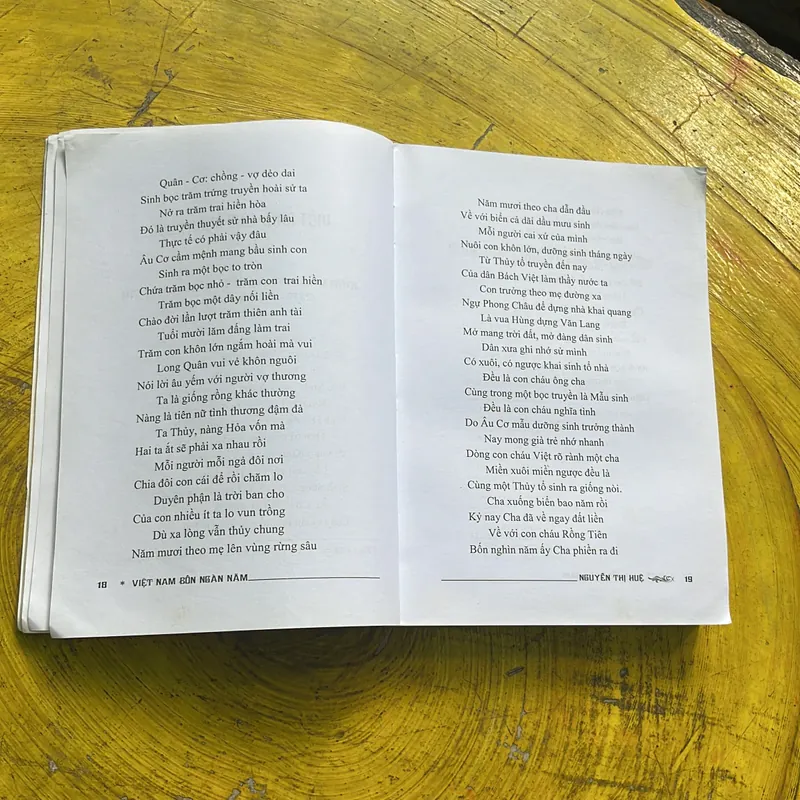 Quân - Cơ: chồng - vợ dẻo dai
Sinh bọc trăm trứng truyền hoài sử ta
Nở ra trăm trai hiền hòa
Đó là truyền thuyết sử nhà bấy lâu
Thực tế có phải vậy đâu
Âu Cơ cầm mệnh mang bầu sinh con
Sinh ra một bọc to tròn
Chứa trăm bọc nhỏ - trăm con trai hiền
Trăm bọc một dây nối liền
Chào đời lần lượt trăm thiên anh tài
Tuổi mười lăm đấng làm trai
Trăm con khôn lớn ngắm hoài mà vui
Long Quân vui vẻ khôn nguôi
Nói lời âu yếm với người vợ thương
Ta là giống rồng khác thường
Nàng là tiên nữ tình thương đậm đà
Ta Thủy, nàng Hỏa vốn mà
Hai ta ắt sẽ phải xa nhau rồi
Mỗi người mỗi ngả đôi nơi
Chia đôi con cái để rồi chăm lo
Duyên phận là trời ban cho
Của con nhiều ít ta lo vun trồng
Dù xa lòng vẫn thủy chung
Năm mươi theo mẹ lên vùng rừng sâu
18 * VIỆT NAM BỐN NGÀN NĂM
Năm mươi theo cha dẫn đầu
Về với biển cả dãi dầu mưu sinh
Mỗi người cai xứ của mình
Nuôi con khôn lớn, dưỡng sinh tháng ngày
Từ Thủy tổ truyền đến nay
Của dân Bách Việt làm thầy nước ta
Con trưởng theo mẹ đường xa
Ngự Phong Châu để dựng nhà khai quang
Là vua Hùng dựng Văn Lang
Mở mang trời đất, mở đàng dân sinh
Dân xưa ghi nhớ sử mình
Có xuôi, có ngược khai sinh tổ nhà
Đều là con cháu ông cha
Cùng trong một bọc truyền là Mẫu sinh
Đều là con cháu nghĩa tình
Do Âu Cơ mẫu dưỡng sinh trưởng thành
Nay mong già trẻ nhớ nhanh
Dòng con cháu Việt rõ rành một cha
Miền xuôi miền ngược đều là
Cùng một Thủy tổ sinh ra giống nòi.
Cha xuống biển bao năm rồi
Kỳ nay Cha đã về ngay đất liền
Về với con cháu Rồng Tiên
Bốn nghìn năm ấy Cha phiền ra đi
NGUYỄN THỊ HUỆ 19